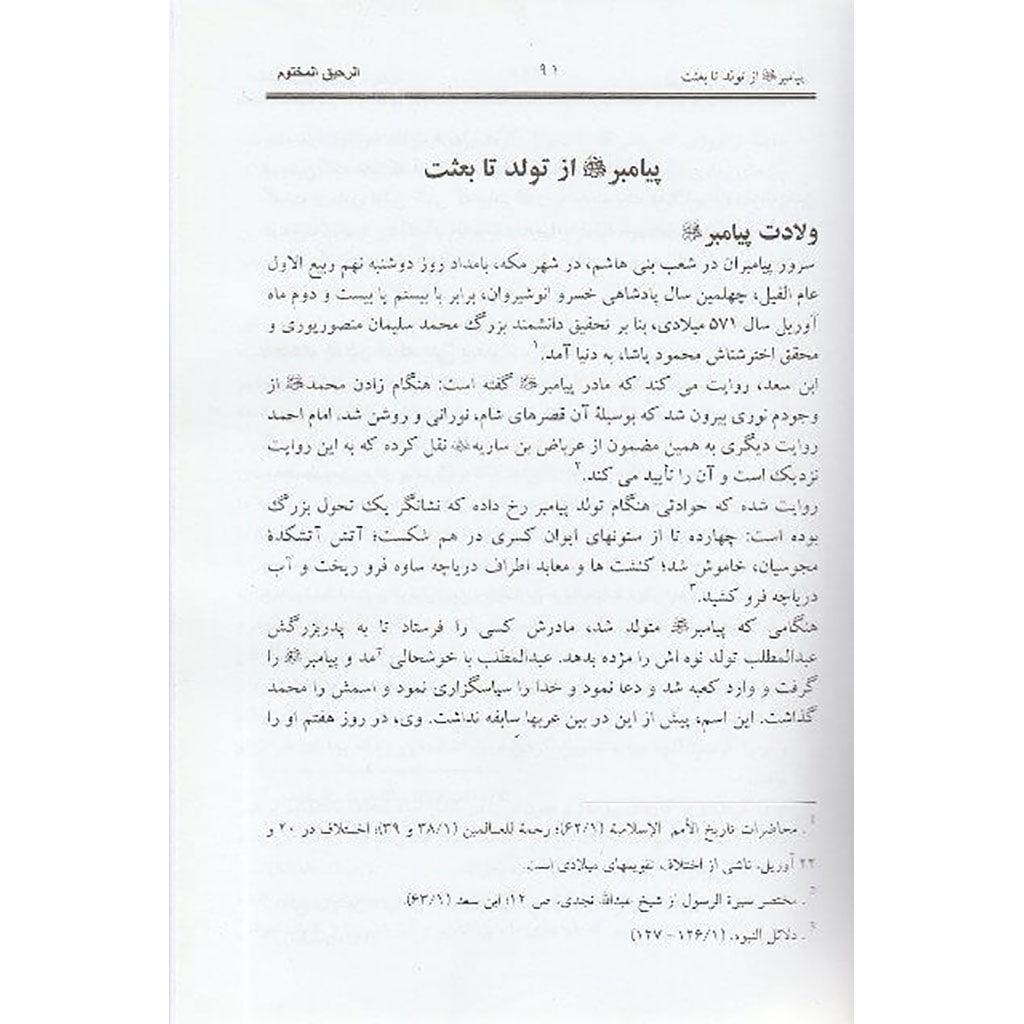 پیامبرﷺ از تولد تا بعثت ۹۱ الرحیق المختوم
پیامبرﷺ از تولد تا بعثت
ولادت پیامبرﷺ
سرور پیامبران در شعب بنی هاشم، در شهر مکه، بامداد روز دوشنبه نهم ربیع الاول
عام الفیل، چهلمین سال پادشاهی خسرو انوشیروان، برابر با بیستم یا بیست و دوم ماه
آوریل سال ۵۷۱ میلادی، بنا بر تحقیق دانشمند بزرگ محمد سلیمان منصورپوری و
محقق اخترشناش محمود پاشا، به دنیا آمد.۱
ابن سعد، روایت می کند که مادر پیامبرﷺ گفته است: هنگام زادن محمدﷺ از
وجودم نوری بیرون شد که بوسیلۀ آن قصرهای شام، نورانی و روشن شد. امام احمد
روایت دیگری به همین مضمون از عرباض بن ساریه نقل کرده که به این روایت
نزدیک است و آن را تأیید می کند.۲
روایت شده که حوادثی هنگام تولد پیامبر رخ داده که نشانگر یک تحول بزرگ
بوده است: چهارده تا از ستونهای ایوان کسری در هم شکست؛ آتش آتشکدۀ
مجوسیان، خاموش شد؛ کنشت ها و معابد اطراف دریاچه ساوه فرو ریخت و آب
دریاچه فرو کشید.۳
هنگامی که پیامبرﷺ متولد شد، مادرش کسی را فرستاد تا به پدربزرگش
عبدالمطلب تولد نوه اش را مژده بدهد. عبدالمطلب با خوشحالی آمد و پیامبرﷺ را
گرفت و وارد کعبه شد و دعا نمود و خدا را سپاسگزاری نمود و اسمش را محمد
گذاشت. این اسم، پیش از این در بین عربها سابقه نداشت. وی، در روز هفتم او را
1 . محاضرات تاریخ الأمم الإسلامیة (۶۲/۱)؛ رحمة للعالمین (۳۸/۱ و ۳۹)؛ اختلاف در ۲۰ و
۲۲ آوریل، ناشی از اختلاف تقویمهای میلادی است.
2 . مختصر سیرة الرسول از شیخ عبدالله نجدی، ص ۱۲؛ ابن سعد (۶۳/۱).
3 . دلائل النبوه، (۱۲۶/۱ – ۱۲۷)